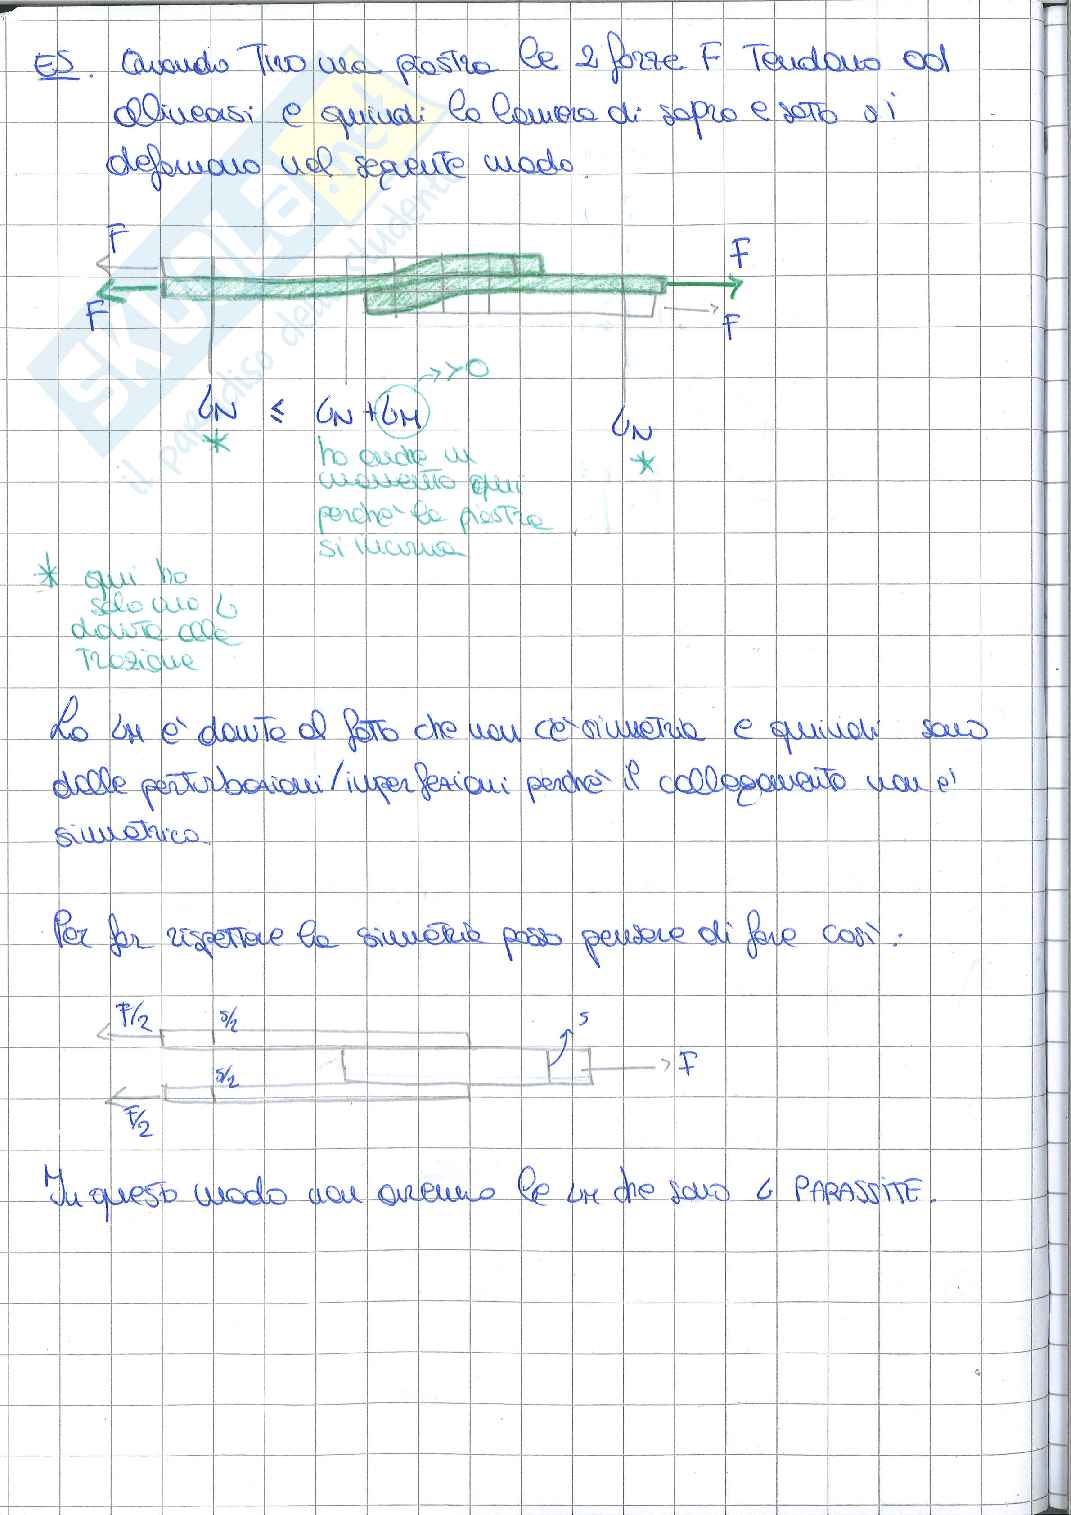 ES. Quando Tiro una piastra le 2 forze F Tendono ad
allinearsi e quindi la lamiera di sopra e sotto si
deformano nel seguente modo.
F
F
F
F
σN ≤ σN + σM → >0
σN
*
*
ho anche un
momento qui
perchè la piastra
si incurva
* qui ho
solo una σ
dovuta alla
Trazione
La σM è dovuta al fatto che non c'è simmetria e quindi sono
delle perturbazioni/imperfezioni perchè il collegamento non è
simmetrico.
Per far rispettare la simmetria posso pensare di fare così:
F/2
s/2
s
s/2
F
F/2
In questo modo non avremo le σM che sono σ PARASSITE.
SKUOLA.net
il paradiso dello studente